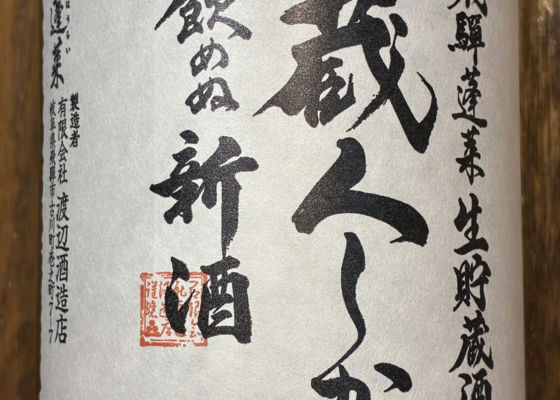 飛騨蓬莱生貯蔵酒
蔵人しか
飲めぬ新酒
蓬莱
ほうらい
製造者
有限会社 渡辺酒造店
岐阜県飛騨市古川町壱之町7-7